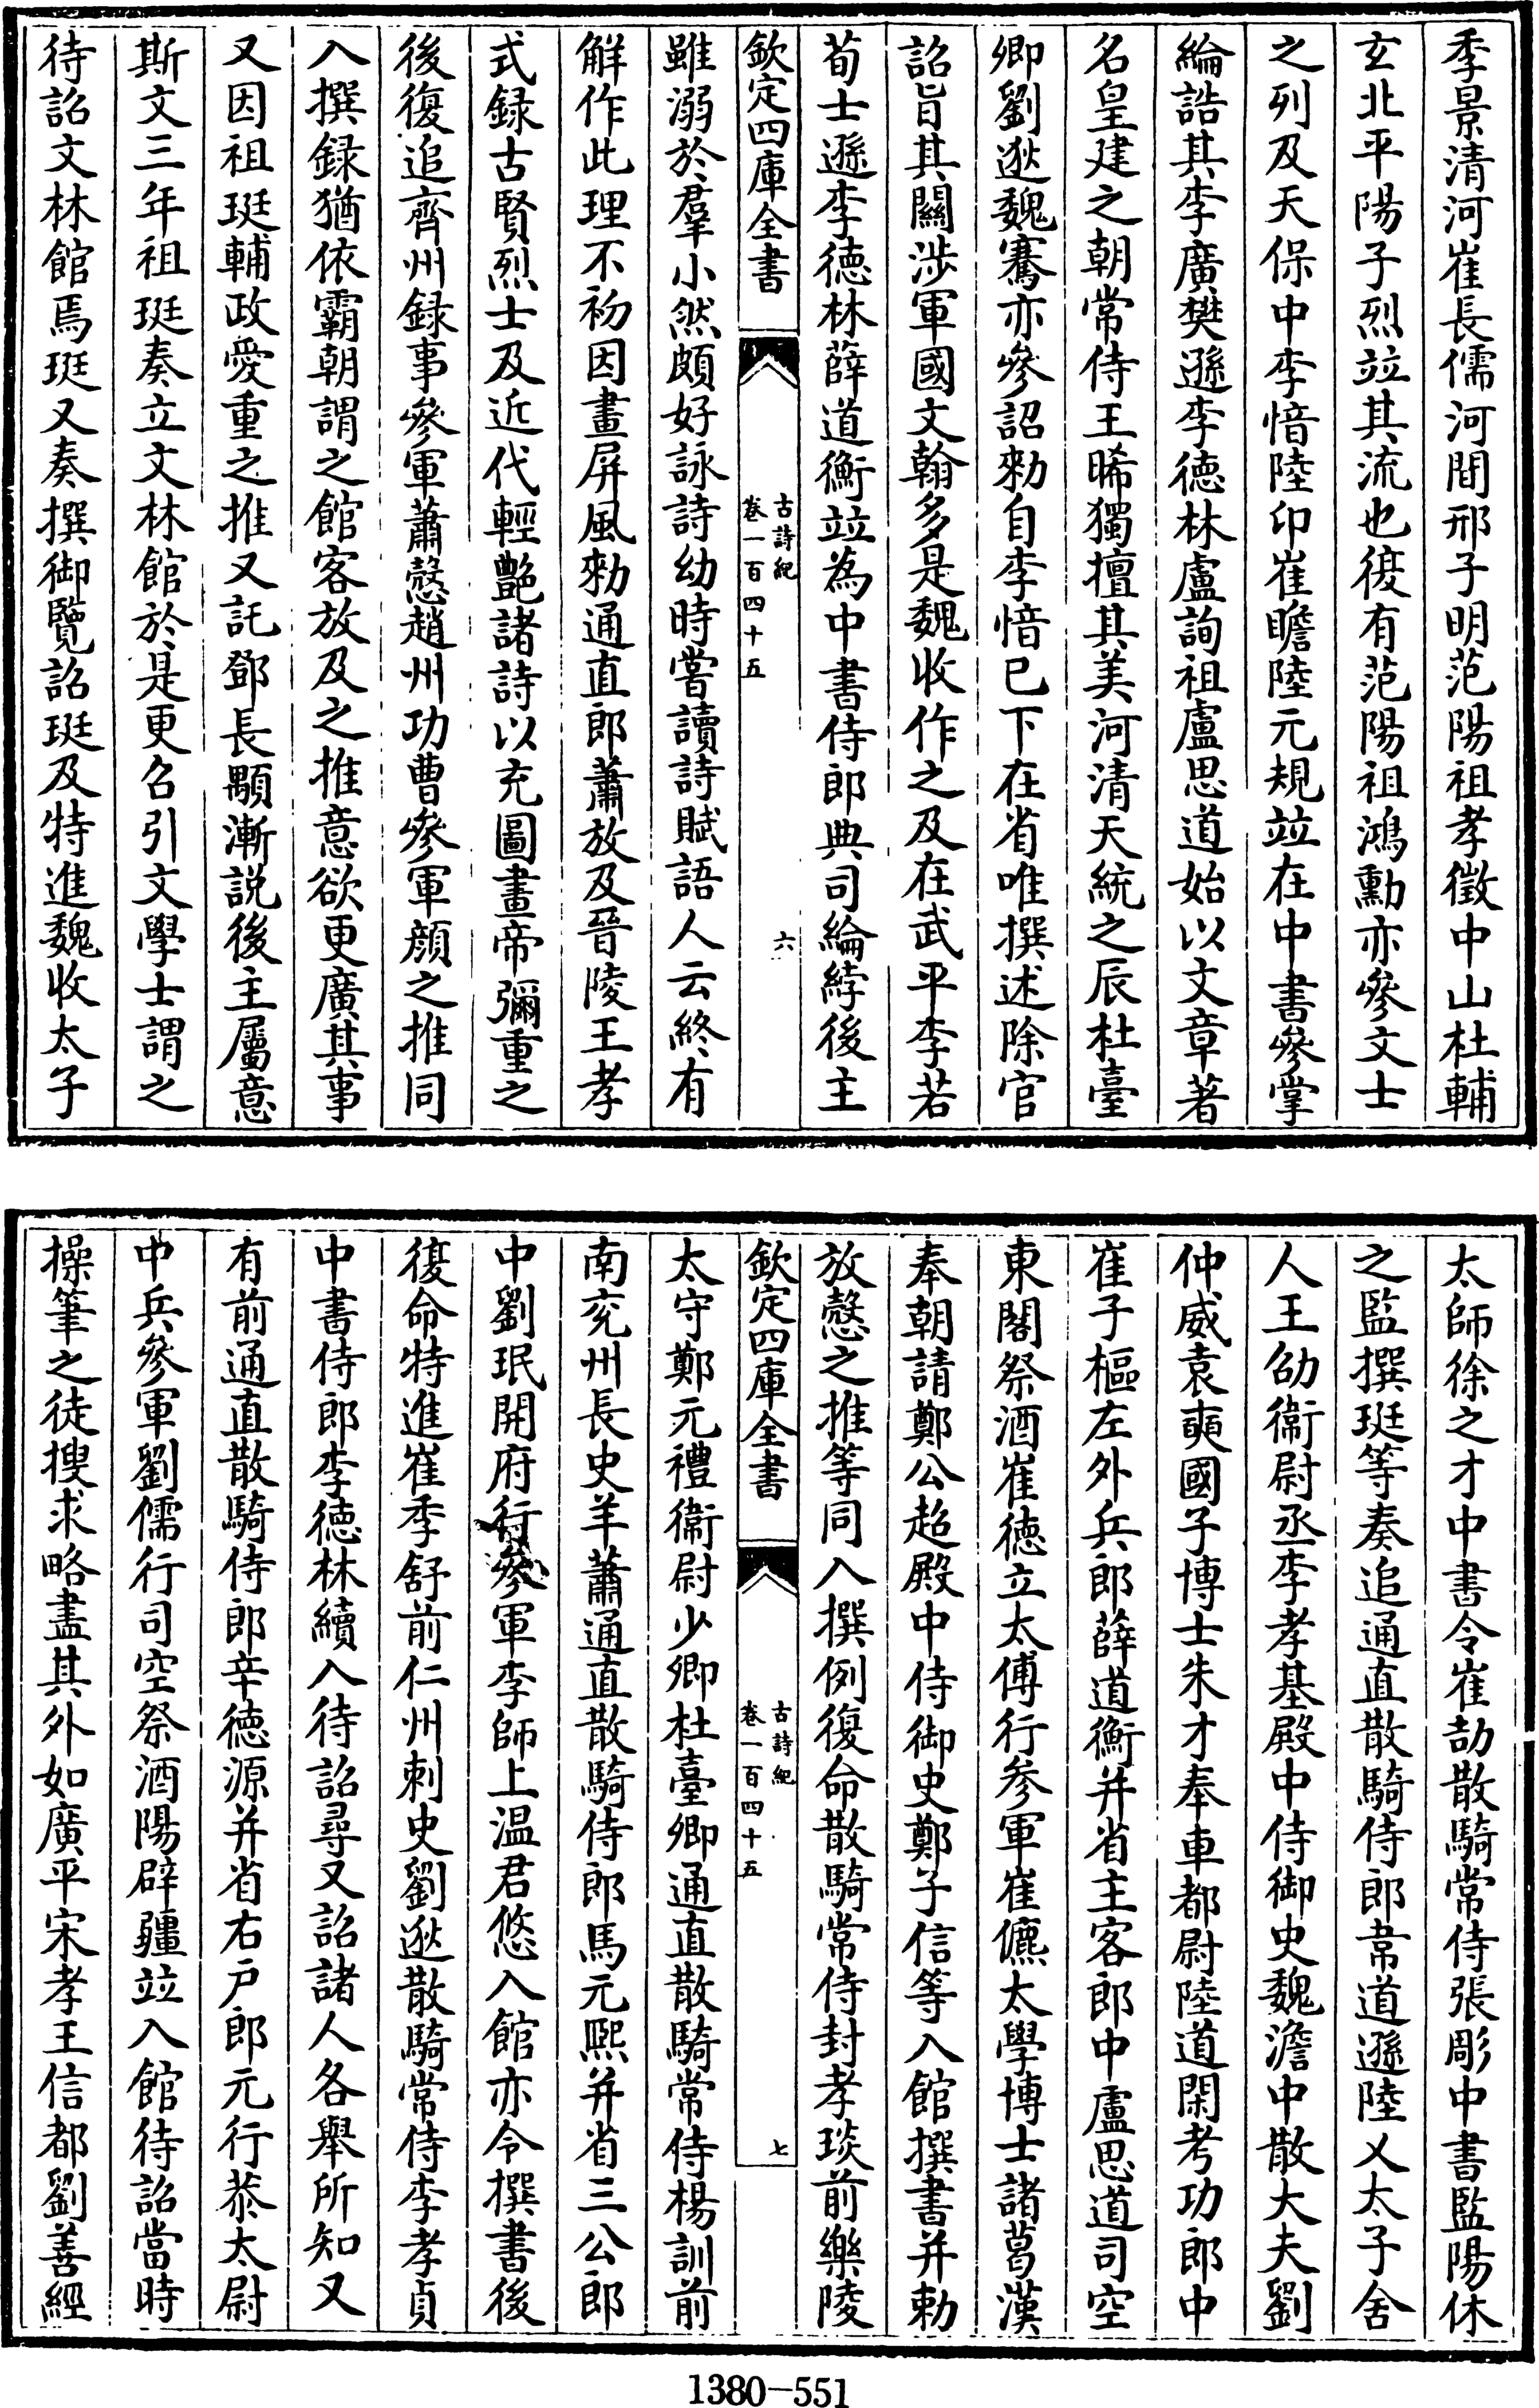 季景清河崔長儒河間邢子明范陽祖孝徵中山杜輔
玄北平陽子烈竝其流也復有范陽祖鴻勳亦參文士
之列及天保中李愔陸卬崔瞻陸元規竝在中書參掌
綸誥其李廣樊遜李徳林盧詢祖盧思道始以文章著
名皇建之朝常侍王晞獨擅其美河清天統之辰杜臺
卿劉逖魏騫亦參詔勑自李愔已下在省唯撰述除官
詔旨其關涉軍國文翰多是魏收作之及在武平李若
荀士遜李徳林薛道衡竝為中書侍郎典司綸綍後主
欽定四庫全書 古詩紀 卷一百四十五 六
雖溺於羣小然頗好詠詩幼時嘗讀詩賦語人云終有
解作此理不初因畫屏風勑通直郎蕭放及晉陵王孝
式録古賢烈士及近代輕艷諸詩以充圖畫帝彌重之
後復追齊州録事參軍蕭慤趙州功曹參軍顔之推同
入撰録猶依霸朝謂之館客放及之推意欲更廣其事
又因祖珽輔政愛重之推又託鄧長顒漸説後主屬意
斯文三年祖珽奏立文林館於是更召引文學士謂之
待詔文林館焉珽又奏撰御覽詔珽及特進魏收太子
太師徐之才中書令崔劼散騎常侍張彫中書監陽休
之監撰珽等奏追通直散騎侍郎韋道遜陸乂太子舍
人王劭衞尉丞李孝基殿中侍御史魏澹中散大夫劉
仲威袁奭國子博士朱才奉車都尉陸道閑考功郎中
崔子樞左外兵郎薛道衡并省主客郎中盧思道司空
東閤祭酒崔徳立太傅行參軍崔儦太學博士諸葛漢
奉朝請鄭公超殿中侍御史鄭子信等入館撰書并勅
放慤之推等同入撰例復命散騎常侍封孝琰前樂陵
欽定四庫全書 古詩紀 卷一百四十五 七
太守鄭元禮衞尉少卿杜臺卿通直散騎常侍楊訓前
南兖州長史羊蕭通直散騎侍郎馬元熙并省三公郎
中劉珉開府行參軍李師上温君悠入館亦令撰書後
復命特進崔季舒前仁州刺史劉逖散騎常侍李孝貞
中書侍郎李徳林續入待詔尋又詔諸人各舉所知又
有前通直散騎侍郎辛徳源并省右户郎元行恭太尉
中兵參軍劉儒行司空祭酒陽辟疆竝入館待詔當時
操筆之徒搜求略盡其外如廣平宋孝王信都劉善經
1380－551